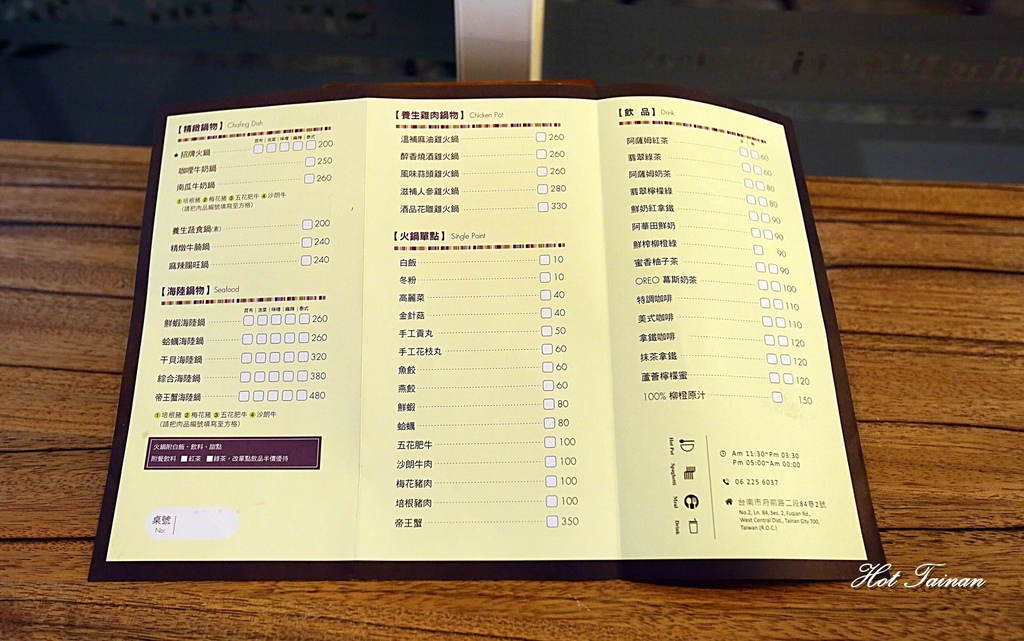 【精緻鍋物】 Chafing Dish
昆布 | 泡菜 | 味噌 | 麻辣 | 泰式
★ 招牌火鍋 200
咖哩牛奶鍋 250
南瓜牛奶鍋 260
❶培根豬 ❷梅花豬 ❸五花肥牛 ❹沙朗牛
(請把肉品編號填寫至方格)
養生蔬食鍋(素) 200
精燉牛腩鍋 240
麻辣腸旺鍋 240
【海陸鍋物】 Seafood
昆布 | 泡菜 | 味噌 | 麻辣 | 泰式
鮮蝦海陸鍋 260
蛤蠣海陸鍋 260
干貝海陸鍋 320
綜合海陸鍋 380
帝王蟹海陸鍋 480
❶培根豬 ❷梅花豬 ❸五花肥牛 ❹沙朗牛
(請把肉品編號填寫至方格)
火鍋附白飯、飲料、甜點
附餐飲料 紅茶 綠茶，改單點飲品半價優待
桌號
No:
【養生雞肉鍋物】 Chicken Pot
溫補麻油雞火鍋 260
醉香燒酒雞火鍋 260
風味蒜頭雞火鍋 260
滋補人參雞火鍋 280
酒品花雕雞火鍋 330
【火鍋單點】 Single Point
白飯 10
冬粉 10
高麗菜 40
金針菇 40
手工貢丸 50
手工花枝丸 60
魚餃 60
燕餃 60
鮮蝦 80
蛤蠣 80
五花肥牛 100
沙朗牛肉 100
梅花豬肉 100
培根豬肉 100
帝王蟹 350
【飲 品】 Drink
阿薩姆紅茶 60
翡翠綠茶 60
阿薩姆奶茶 80
翡翠檸檬綠 80
鮮奶紅拿鐵 90
阿華田鮮奶 90
鮮榨柳橙綠 90
蜜香柚子茶 90
OREO 慕斯奶茶 100
特調咖啡 110
美式咖啡 110
拿鐵咖啡 120
抹茶拿鐵 120
蘆薈檸檬蜜 120
100% 柳橙原汁 150
Hot Pot
Spaghetti
Meal
Drink
Am 11:30~Pm 03:30
Pm 05:00~Am 00:00
06 225 6037
台南市府前路二段84巷2號
No.2, Ln. 84, Sec. 2, Fuqian Rd.,
West Central Dist., Tainan City 700,
Taiwan (R.O.C.)
Hot Tainan